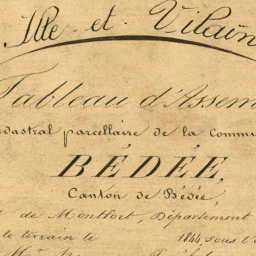 Ille et Vilain
Tableau d'Assem
adastral parcellaire de la Commu
BÉDÉE,
Canton de Bédée,
de Montfort, Département
le terrein le 1844, sous l'